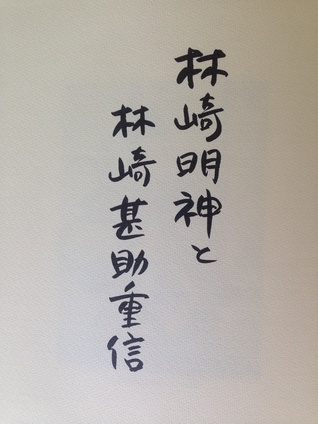 林崎明神と
林崎甚助重信